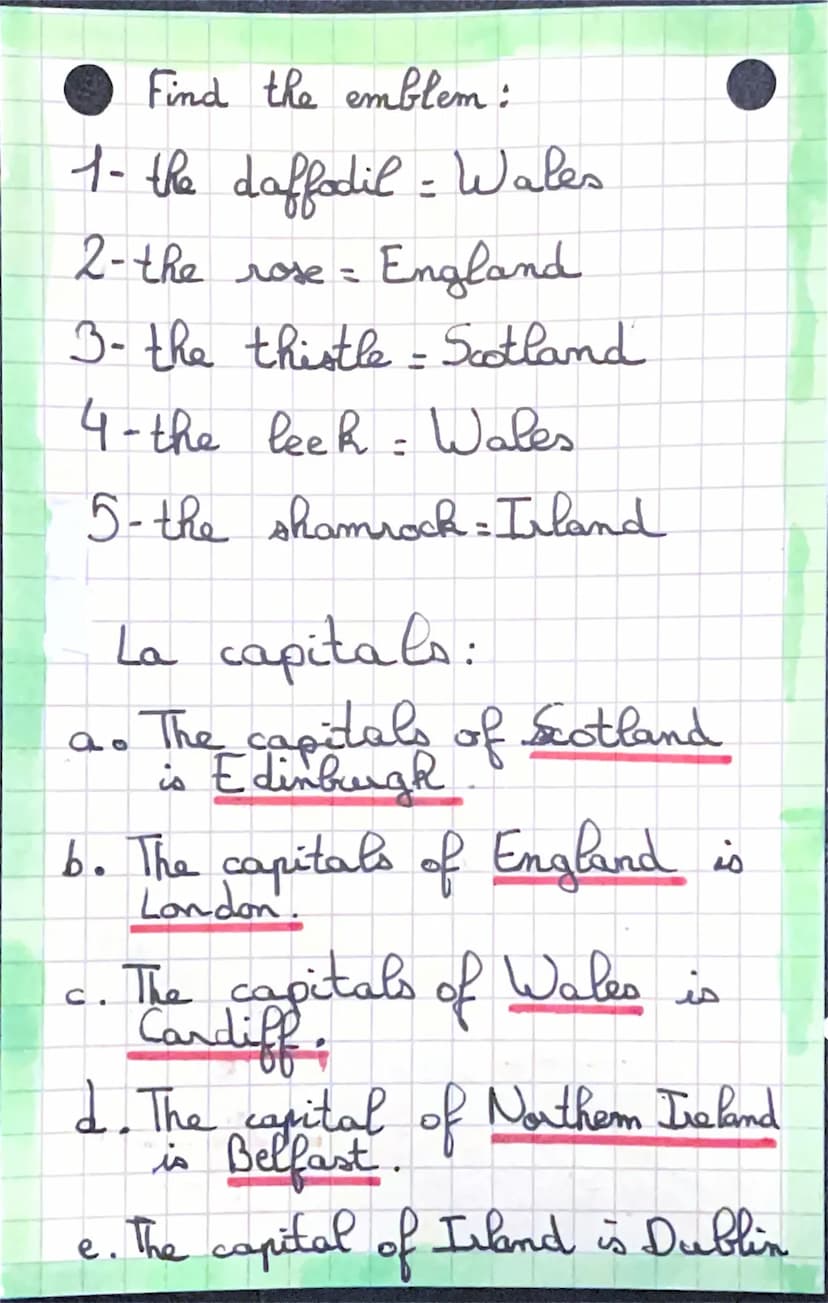 Find the emblem :
1- the daffodil = Wales
2- the rose = England
3- the thistle = Scotland
4 - the leek = Wales
5 - the shamrock = Irland
La capitals :
a. The capitals of Scotland
is Edinburgh.
b. The capitals of England is
London.
c. The capitals of Wales is
Cardiff.
d. The capital of Northern Ireland
is Belfast.
e. The capital of Irland is Dublin